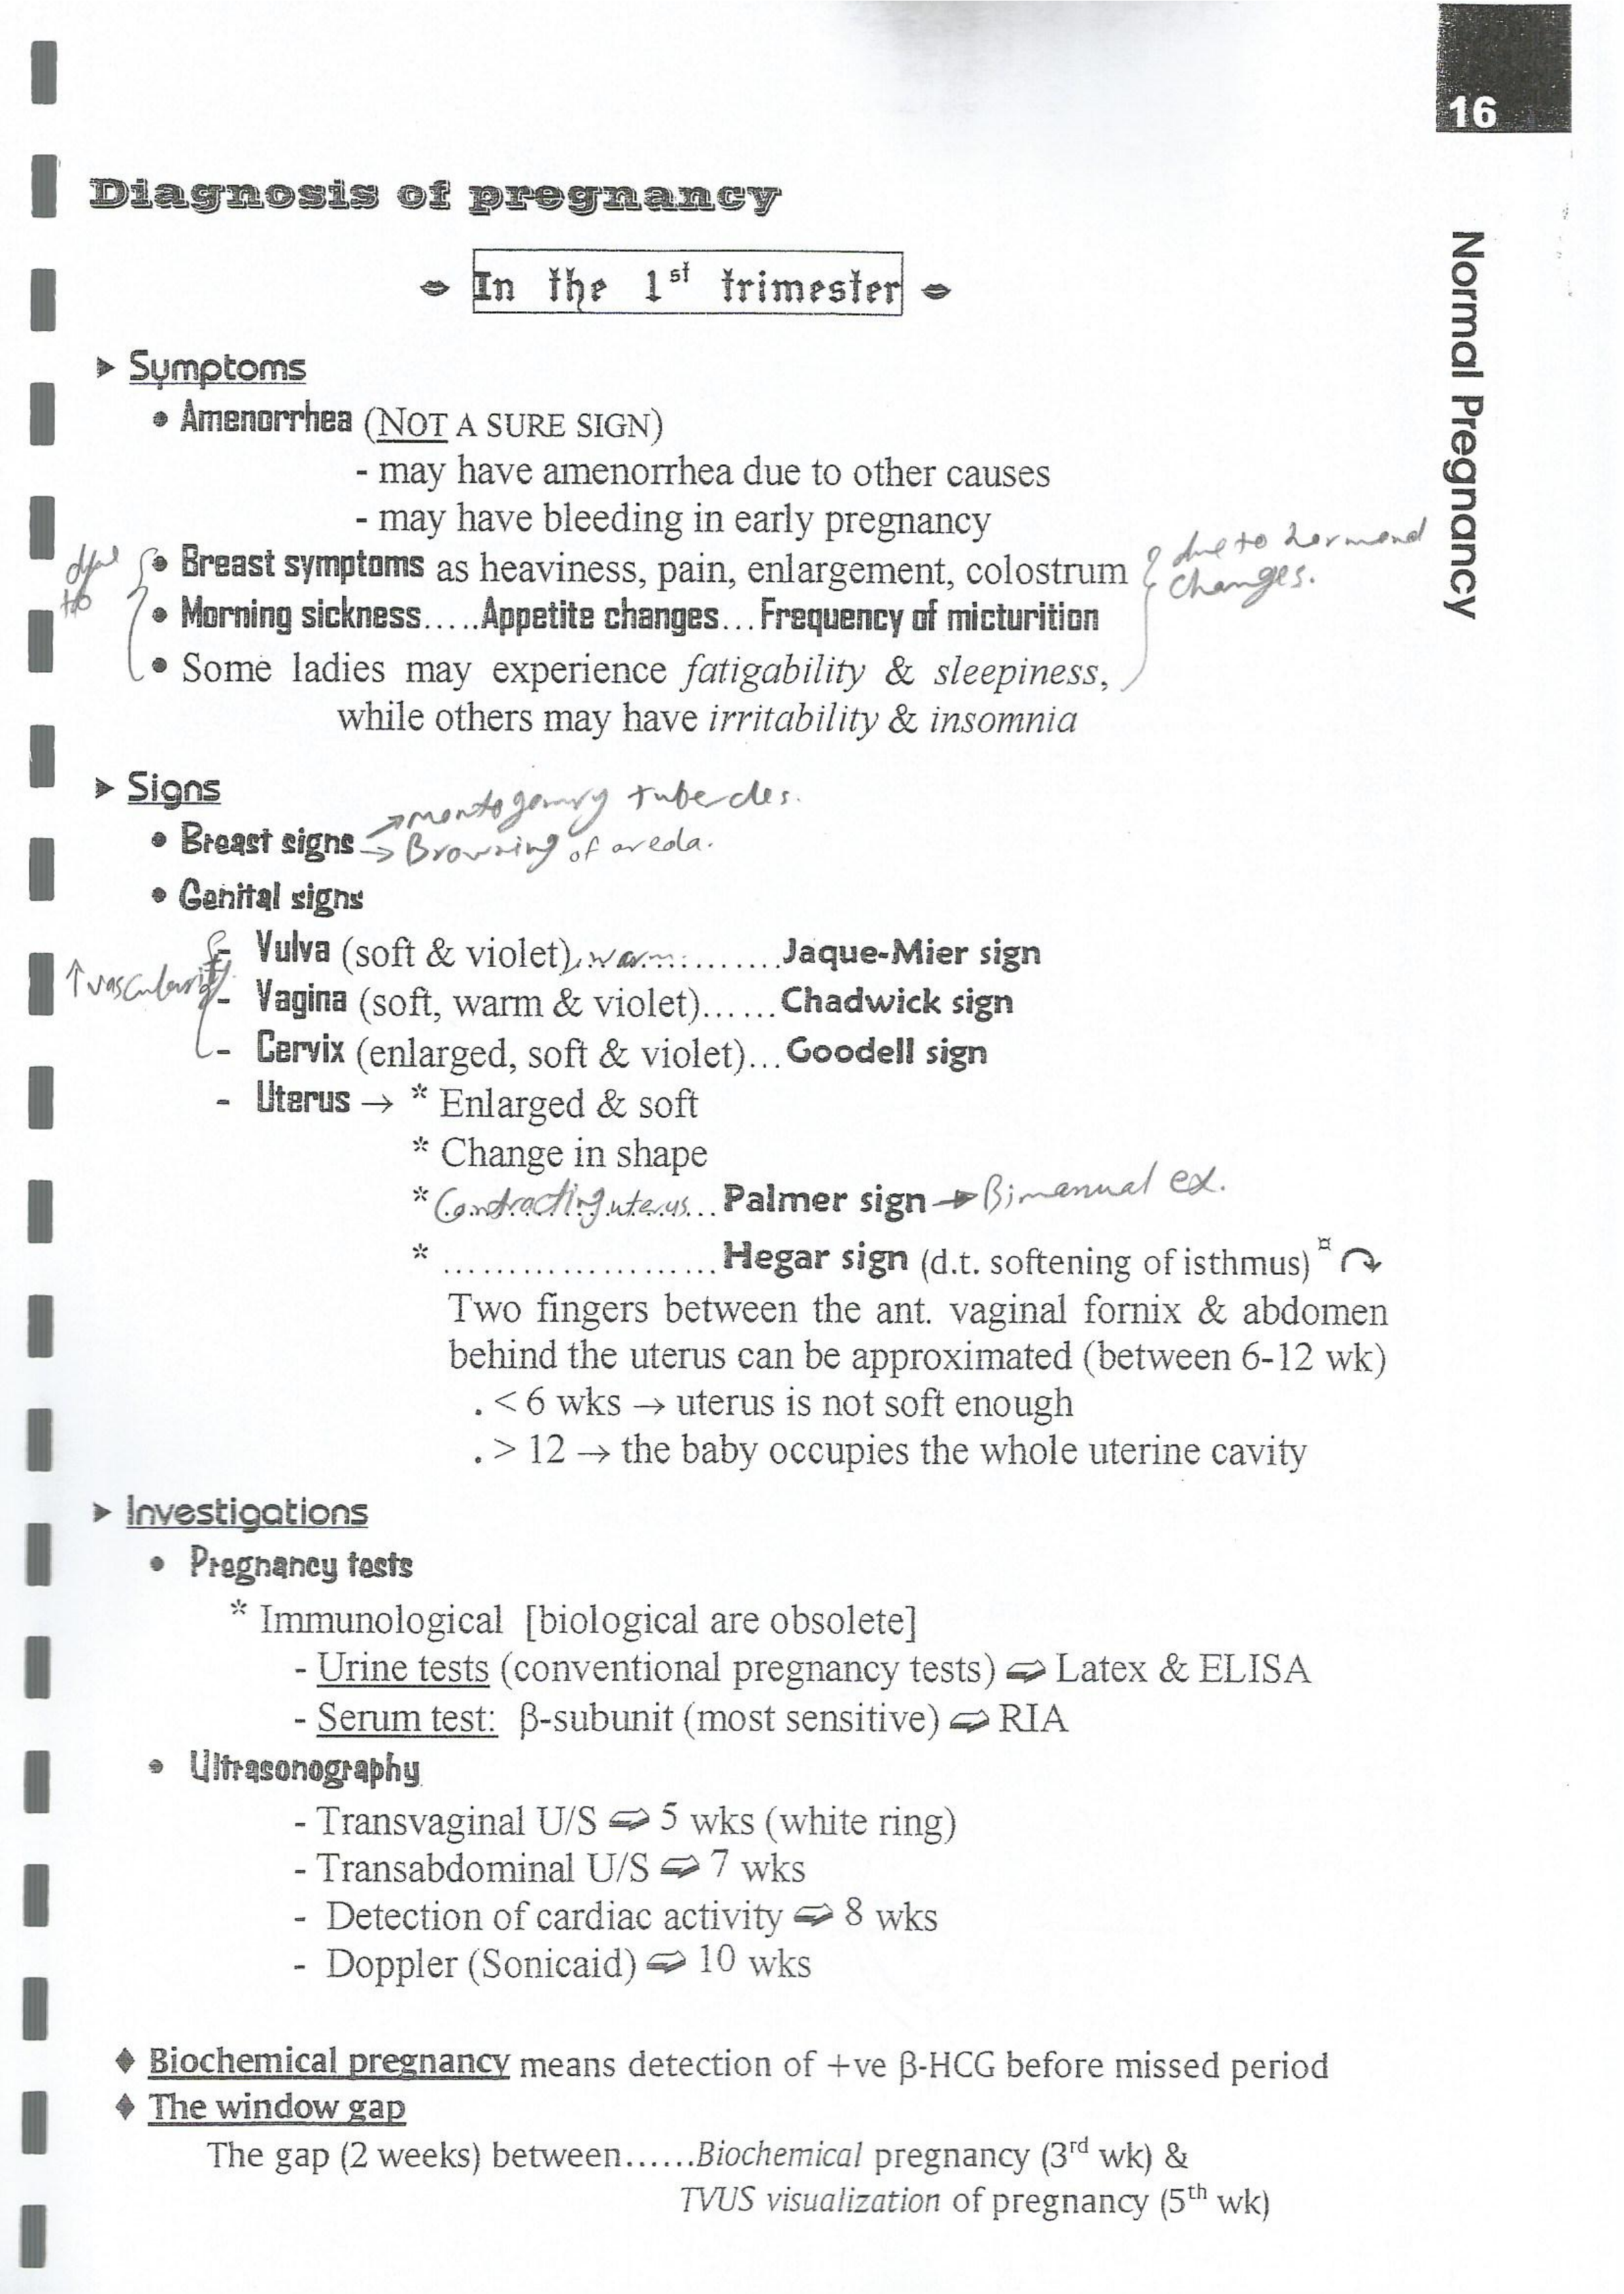 16
Normal Pregnancy
Diagnosis of pregnancy
In the 1st trimester
➤ Symptoms
• Amenorrhea (NOT A SURE SIGN)
- may have amenorrhea due to other causes
- may have bleeding in early pregnancy
• Breast symptoms as heaviness, pain, enlargement, colostrum
due to hormonal
changes.
• Morning sickness.....Appetite changes...Frequency of micturition
• Some ladies may experience fatigability & sleepiness,
while others may have irritability & insomnia
➤ Signs
• Breast signs → montogomry tubercles.
→ Browning of areola.
• Genital signs
↑ vascularity
- Vulva (soft & violet), warm..........Jaque-Mier sign
- Vagina (soft, warm & violet)......Chadwick sign
- Cervix (enlarged, soft & violet)...Goodell sign
- Uterus → * Enlarged & soft
* Change in shape
* Contracting uterus...Palmer sign → Bimanual ex.
* .....................Hegar sign (d.t. softening of isthmus)¤
Two fingers between the ant. vaginal fornix & abdomen
behind the uterus can be approximated (between 6-12 wk)
. < 6 wks → uterus is not soft enough
. > 12 → the baby occupies the whole uterine cavity
➤ Investigations
• Pregnancy tests
* Immunological [biological are obsolete]
- Urine tests (conventional pregnancy tests) ⇨ Latex & ELISA
- Serum test: β-subunit (most sensitive) ⇨ RIA
• Ultrasonography
- Transvaginal U/S ⇨ 5 wks (white ring)
- Transabdominal U/S ⇨ 7 wks
- Detection of cardiac activity ⇨ 8 wks
- Doppler (Sonicaid) ⇨ 10 wks
♦ Biochemical pregnancy means detection of +ve β-HCG before missed period
♦ The window gap
The gap (2 weeks) between......Biochemical pregnancy (3rd wk) &
TVUS visualization of pregnancy (5th wk)